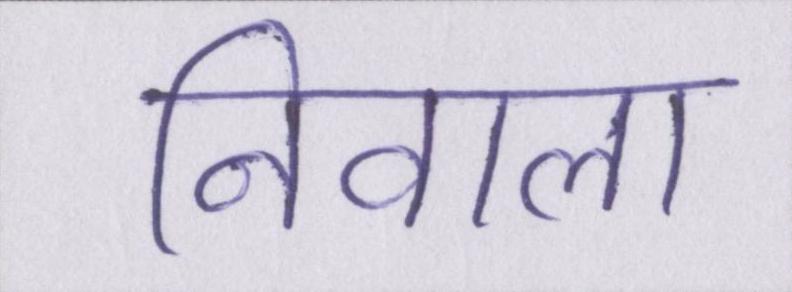 निवाला